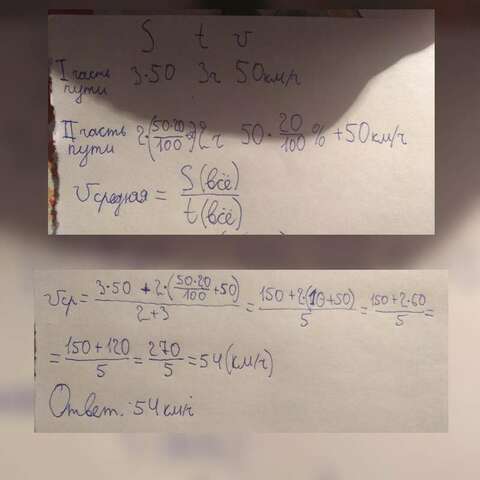 S t v
I часть пути 3·50 3ч 50км/ч
II часть пути 2·(50·20/100 +50) 2ч 50·20/100% +50км/ч
Vсредняя = S(всё)/t(всё)
Vср = (3·50 + 2·(50·20/100 +50))/(2+3) = (150+2·(10+50))/5 = (150+2·60)/5 =
= (150+120)/5 = 270/5 = 54(км/ч)
Ответ: 54км/ч